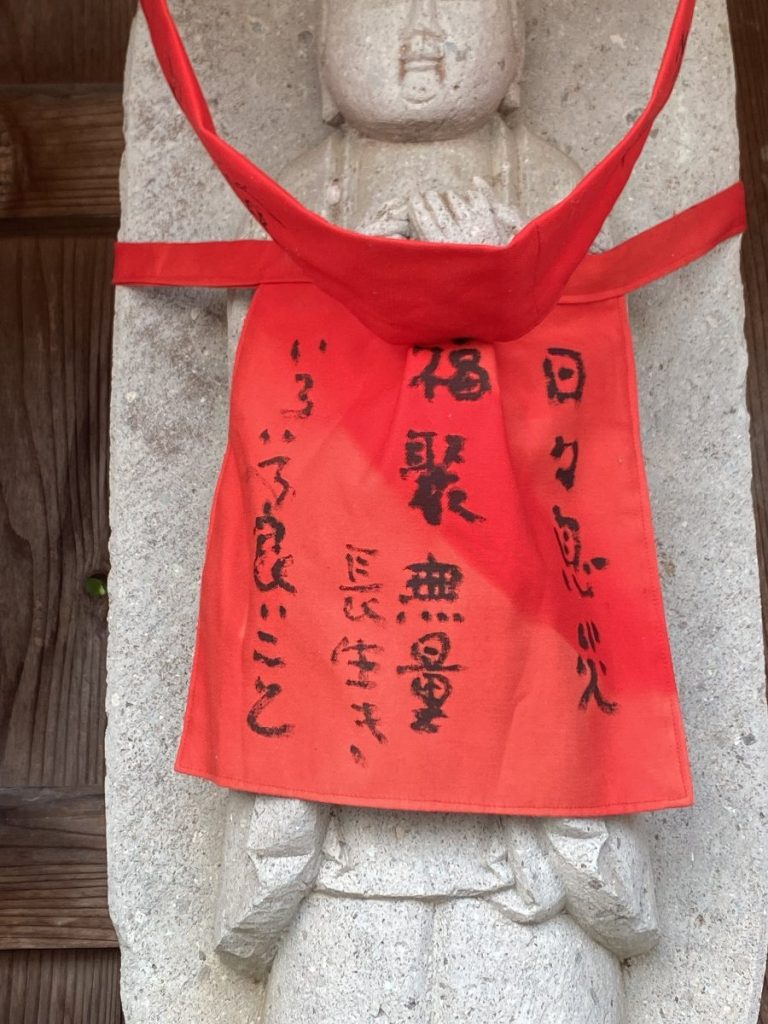 日々息災
福聚無量
長生き
いろいろ良いこと